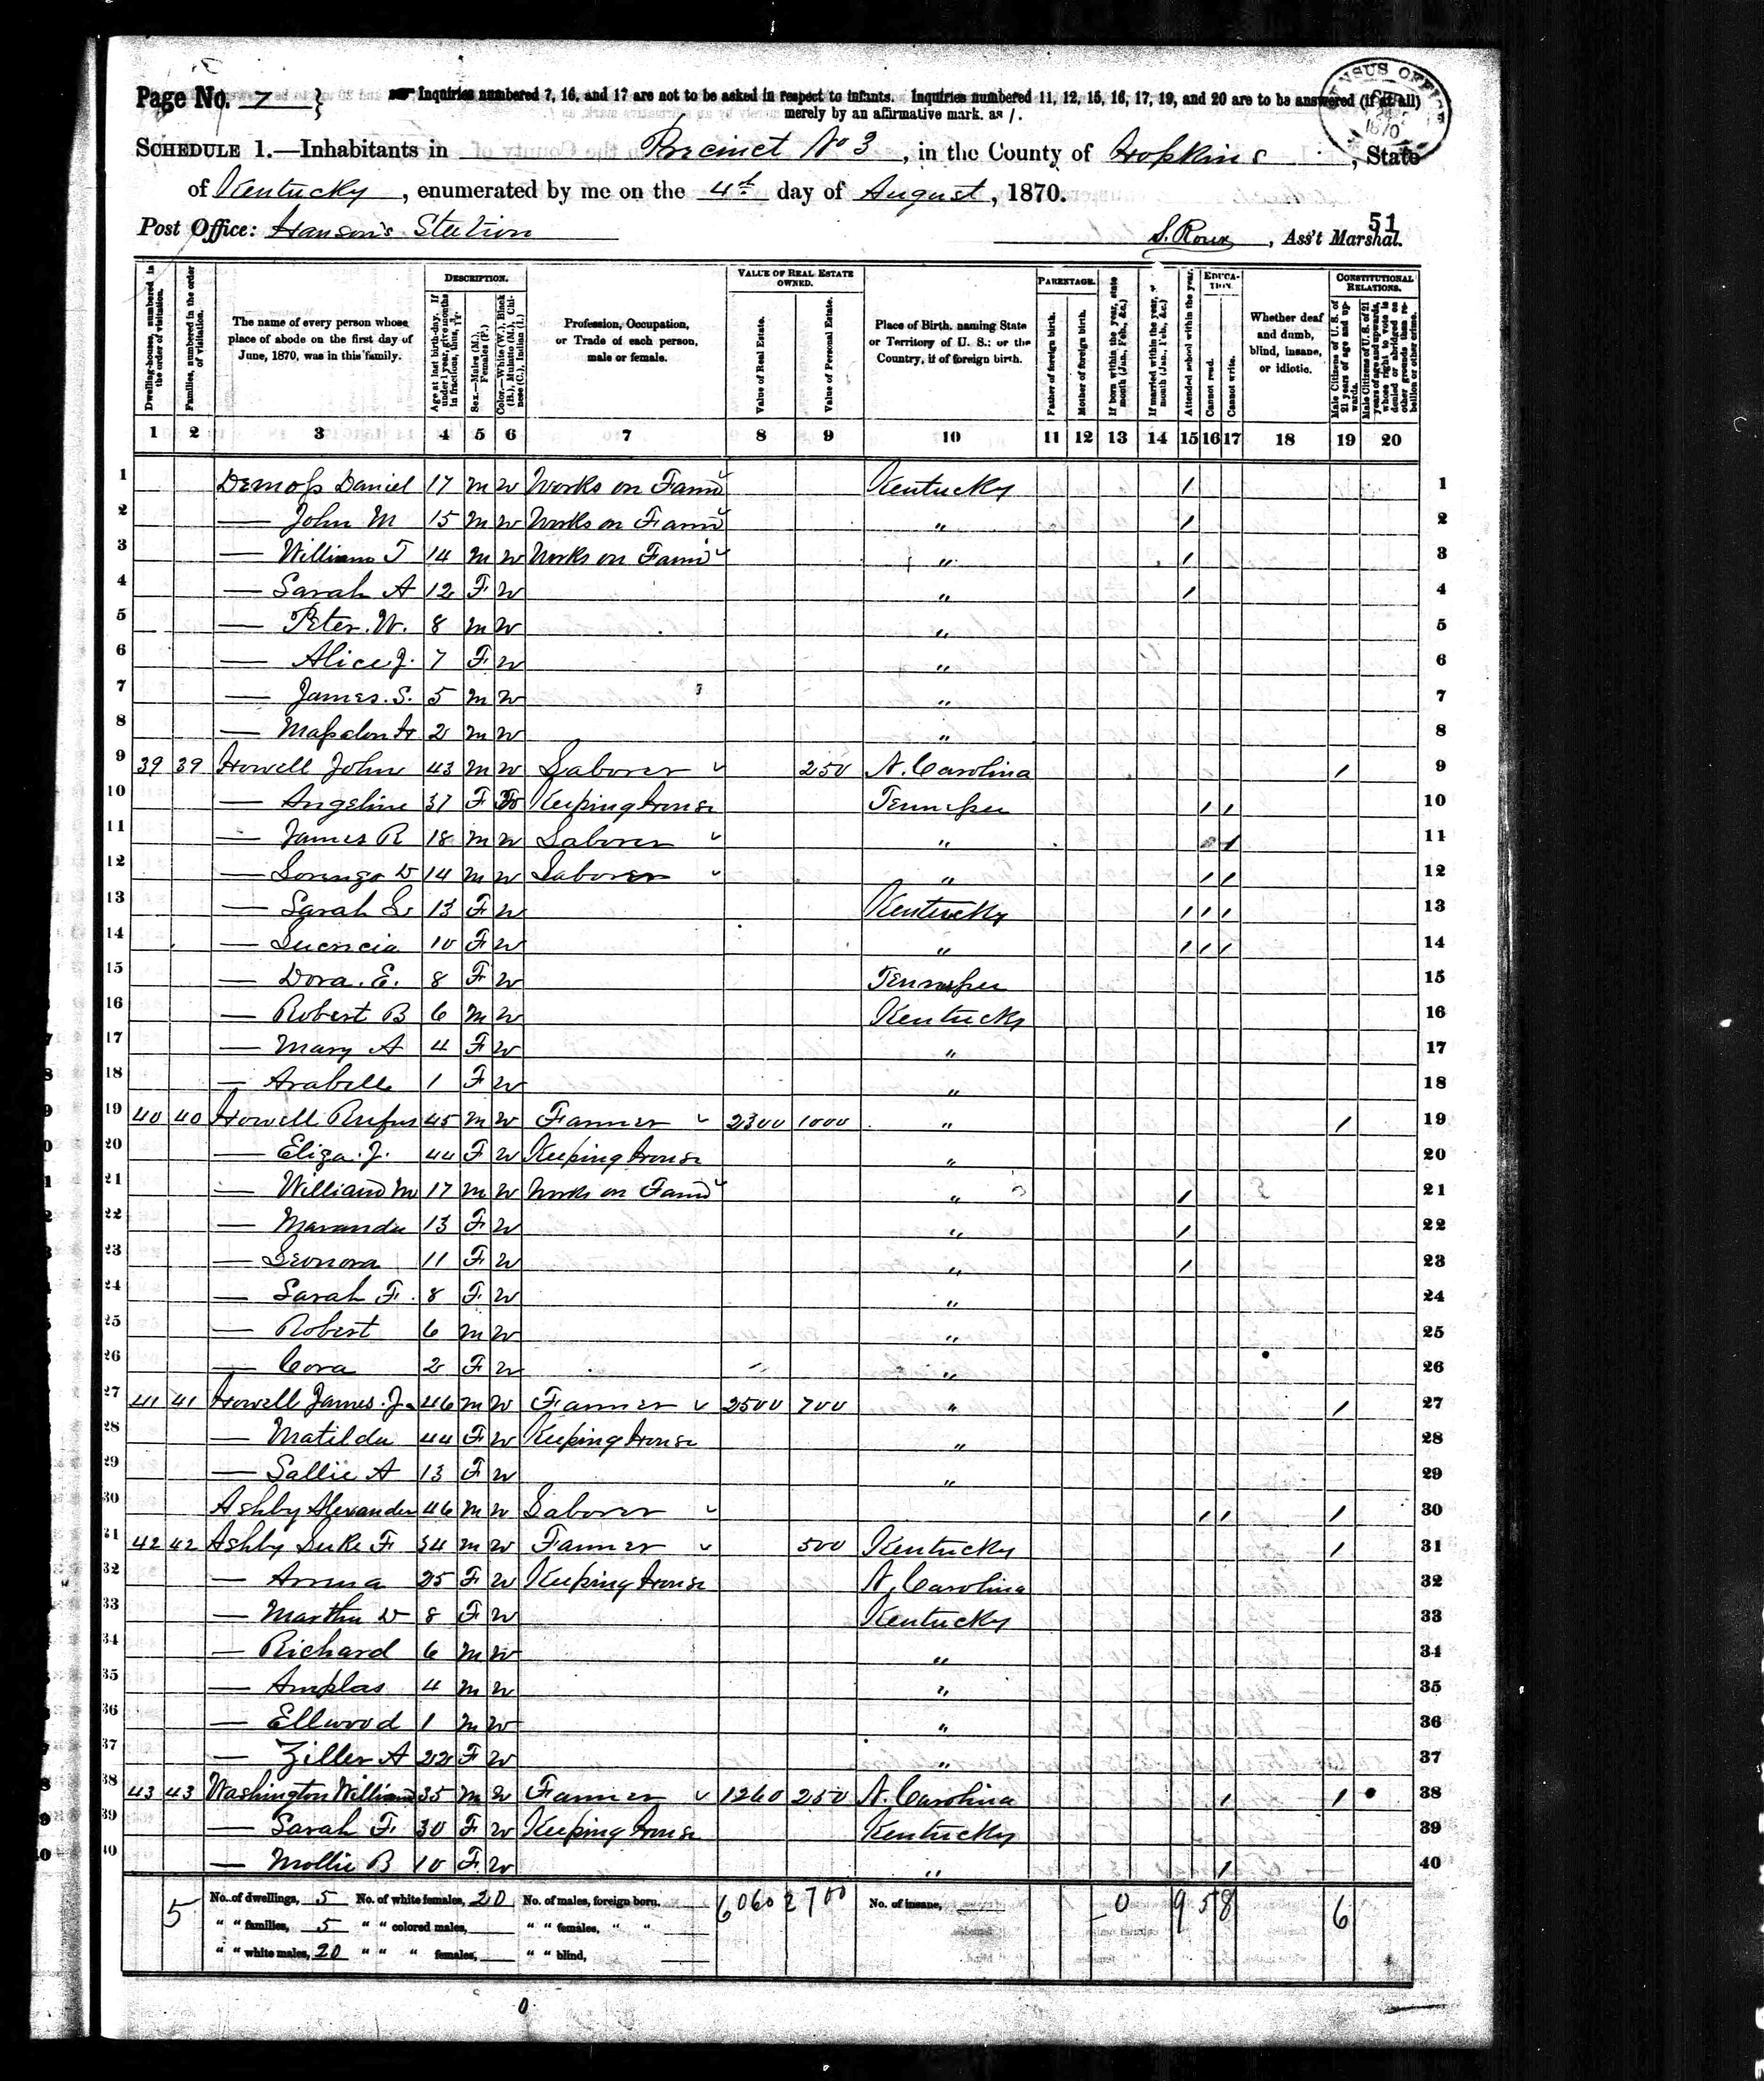 Page No. 7 } Inquiries numbered 7, 16, and 17 are not to be asked in respect to infants. Inquiries numbered 11, 12, 15, 16, 17, 19, and 20 are to be answered (if at all)
merely by an affirmative mark, as /.
CENSUS OFFICE 1870
SCHEDULE 1.—Inhabitants in Precinct No 3, in the County of Hopkins, State
of Kentucky, enumerated by me on the 4th day of August, 1870.
51
Post Office: Hanson's Station S. Roux, Ass't Marshal.
Dwelling-houses, numbered in the order of visitation.
Families, numbered in the order of visitation.
The name of every person whose place of abode on the first day of June, 1870, was in this family.
DESCRIPTION.
Age at last birth-day. If under 1 year, give months in fractions, thus, 3/12.
Sex.—Males (M.), Females (F.)
Color.—White (W.), Black (B.), Mulatto (M.), Chinese (C.), Indian (I.)
Profession, Occupation, or Trade of each person, male or female.
VALUE OF REAL ESTATE OWNED.
Value of Real Estate.
Value of Personal Estate.
Place of Birth, naming State or Territory of U. S.; or the Country, if of foreign birth.
PARENTAGE.
Father of foreign birth.
Mother of foreign birth.
If born within the year, state month (Jan., Feb., &c.)
If married within the year, month (Jan., Feb., &c.)
Attended school within the year.
EDUCATION.
Cannot read.
Cannot write.
Whether deaf and dumb, blind, insane, or idiotic.
CONSTITUTIONAL RELATIONS.
Male Citizens of U. S. of 21 years of age and upwards.
Male Citizens of U. S. of 21 years of age and upwards, whose right to vote is denied or abridged on other grounds than rebellion or other crime.
1 2 3 4 5 6 7 8 9 10 11 12 13 14 15 16 17 18 19 20
1 Demoss Daniel 17 M W Works on Farm Kentucky / 1
2 — John M 15 M W Works on Farm " / 2
3 — William T 14 M W Works on Farm " / 3
4 — Sarah A 12 F W " / 4
5 — Peter. W. 8 M W " 5
6 — Alice J. 7 F W " 6
7 — James. S. 5 M W " 7
8 — 2 M W " 8
9 39 39 Howell John 43 M W Laborer 250 N. Carolina / 9
10 — Angeline 37 F W Keeping house Tennessee / / 10
11 — James R 18 M W Laborer " / 11
12 — Lorenzo D 14 M W Laborer " / / 12
13 — Sarah L 13 F W Kentucky / / / 13
14 — 10 F W " / / / 14
15 — Dora. E. 8 F W Tennessee 15
16 — Robert B 6 M W Kentucky 16
17 — Mary A 4 F W " 17
18 — Arabell 1 F W " 18
19 40 40 Howell Rufus 45 M W Farmer 2300 1000 " / 19
20 — Eliza. J. 44 F W Keeping house " 20
21 — William M 17 M W Works on Farm " / 21
22 — Maranda 13 F W " / 22
23 — Leonora 11 F W " / 23
24 — Sarah F. 8 F W " 24
25 — Robert 6 M W " 25
26 — Cora 2 F W " 26
27 41 41 Howell James. J. 46 M W Farmer 2500 700 " / 27
28 — Matilda 44 F W Keeping house " 28
29 — Sallie A 13 F W " 29
30 Ashby Alexander 46 M W Laborer / / / 30
31 42 42 Ashby Luke F 34 M W Farmer 500 Kentucky / 31
32 — Anna 25 F W Keeping house N. Carolina 32
33 — Martha D 8 F W Kentucky 33
34 — Richard 6 M W " 34
35 — 4 M W " 35
36 — Ellwood 1 M W " 36
37 — Ziller A 22 F W " 37
38 43 43 Washington William 35 M W Farmer 1260 250 N. Carolina / / 38
39 — Sarah F. 30 F W Keeping house Kentucky 39
40 — Mollie B 10 F W " / 40
5 No. of dwellings, 5 No. of white females, 20 No. of males, foreign born, 6060 2700 No. of insane, 0 9 5 8 6
" " families, 5 " " colored males, " " females, " "
" " white males, 20 " " " females, " " blind,